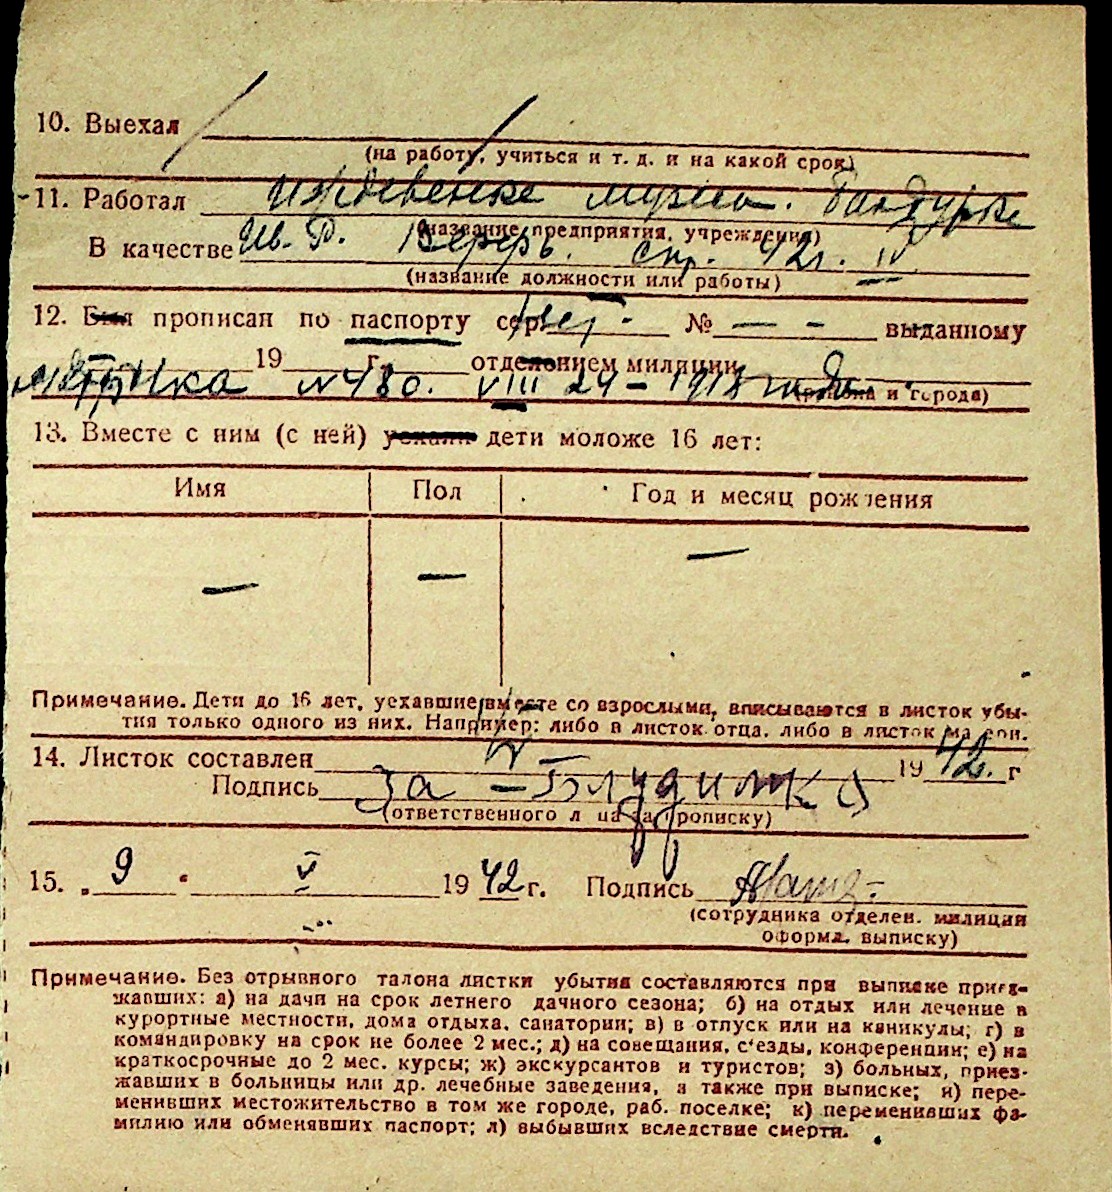 10. Выехал
(на работу, учиться и т. д. и на какой срок)
11. Работал иждевенка мужа.
(название предприятия, учреждения)
В качестве Ив. Р. спр. 42г. IV
(название должности или работы)
12. Был прописан по паспорту сер. № — - выданному
19 г. отделением милиции
метрика №480. VIII 24 - 1918 года
(района и города)
13. Вместе с ним (с ней) уехали дети моложе 16 лет:
Имя Пол Год и месяц рождения
— — —
Примечание. Дети до 16 лет, уехавшие вместе со взрослыми, вписываются в листок убы-
тия только одного из них. Например: либо в листок отца, либо в листок матери.
14. Листок составлен 1942. г
Подпись За - Блудилка
(ответственного лица за прописку)
15. „ 9 “ V 1942 г. Подпись
(сотрудника отделен. милиции
оформл. выписку)
Примечание. Без отрывного талона листки убытия составляются при выписке приез-
жавших: а) на дачи на срок летнего дачного сезона; б) на отдых или лечение в
курортные местности, дома отдыха, санатории; в) в отпуск или на каникулы; г) в
командировку на срок не более 2 мес.; д) на совещания, с'езды, конференции; е) на
краткосрочные до 2 мес. курсы; ж) экскурсантов и туристов; з) больных, приез-
жавших в больницы или др. лечебные заведения, а также при выписке; и) пере-
менивших местожительство в том же городе, раб. поселке; к) переменивших фа-
милию или обменявших паспорт; л) выбывших вследствие смерти.